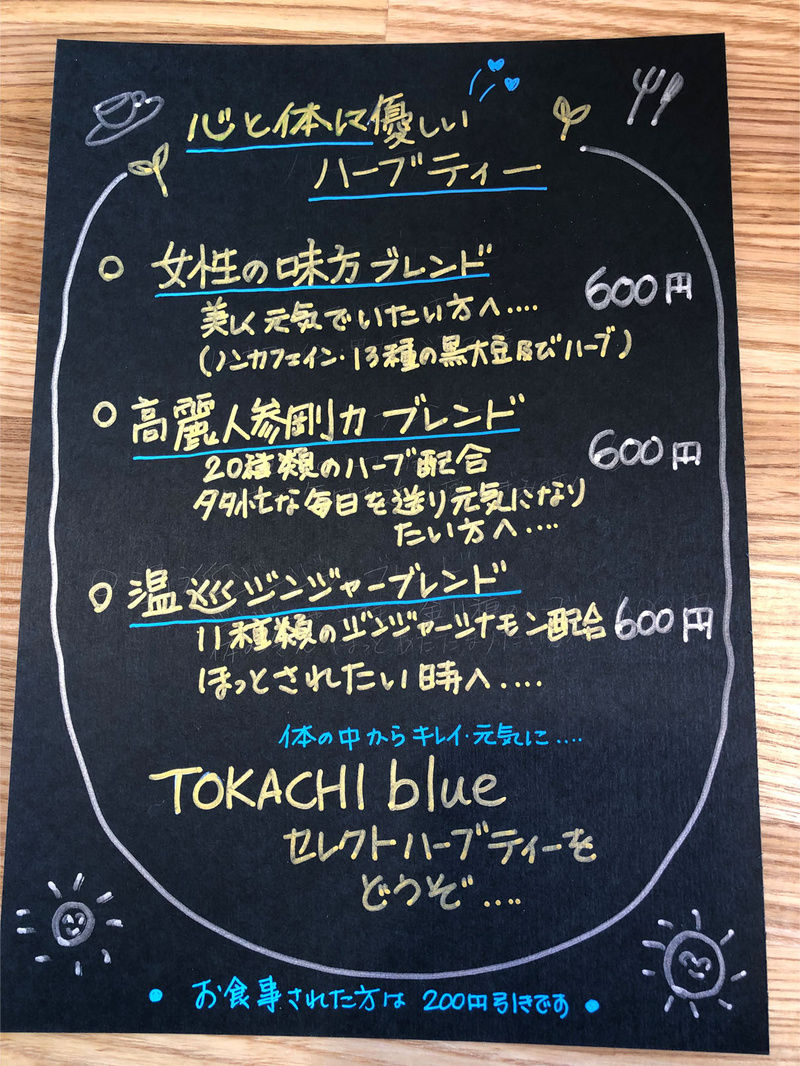 心と体に優しい
ハーブティー
○ 女性の味方ブレンド 600円
美しく元気でいたい方へ‥‥
(ノンカフェイン・13種の黒大豆及びハーブ)
○ 高麗人参剛力ブレンド 600円
20種類のハーブ配合
多忙な毎日を送り元気になり
たい方へ‥‥
○ 温巡ジンジャーブレンド
11種類のジンジャーシナモン配合 600円
ほっとされたい時へ‥‥
体の中からキレイ・元気に‥‥
TOKACHI blue
セレクトハーブティーを
どうぞ‥‥
• お食事された方は 200円引きです •